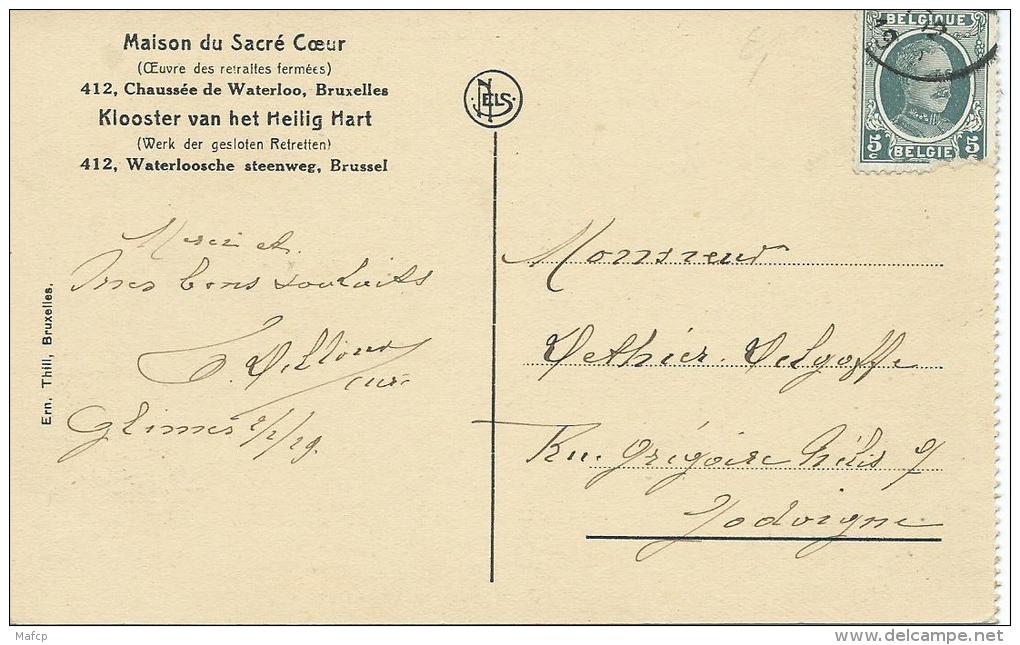 Maison du Sacré Cœur
(Œuvre des retraites fermées)
412, Chaussée de Waterloo, Bruxelles
Klooster van het Heilig Hart
(Werk der gesloten Retretten)
412, Waterloosche steenweg, Brussel
NELS
BELGIQUE
5 c 5 c
BELGIE
Merci et
mes bons souhaits
curé
Glimes 2/1/29.
Ern. Thill, Bruxelles.
Monsieur
Dethier-Delgoffe
Rue Grégoire Nélis 9
Jodoigne
Mafcp
delcampe.net